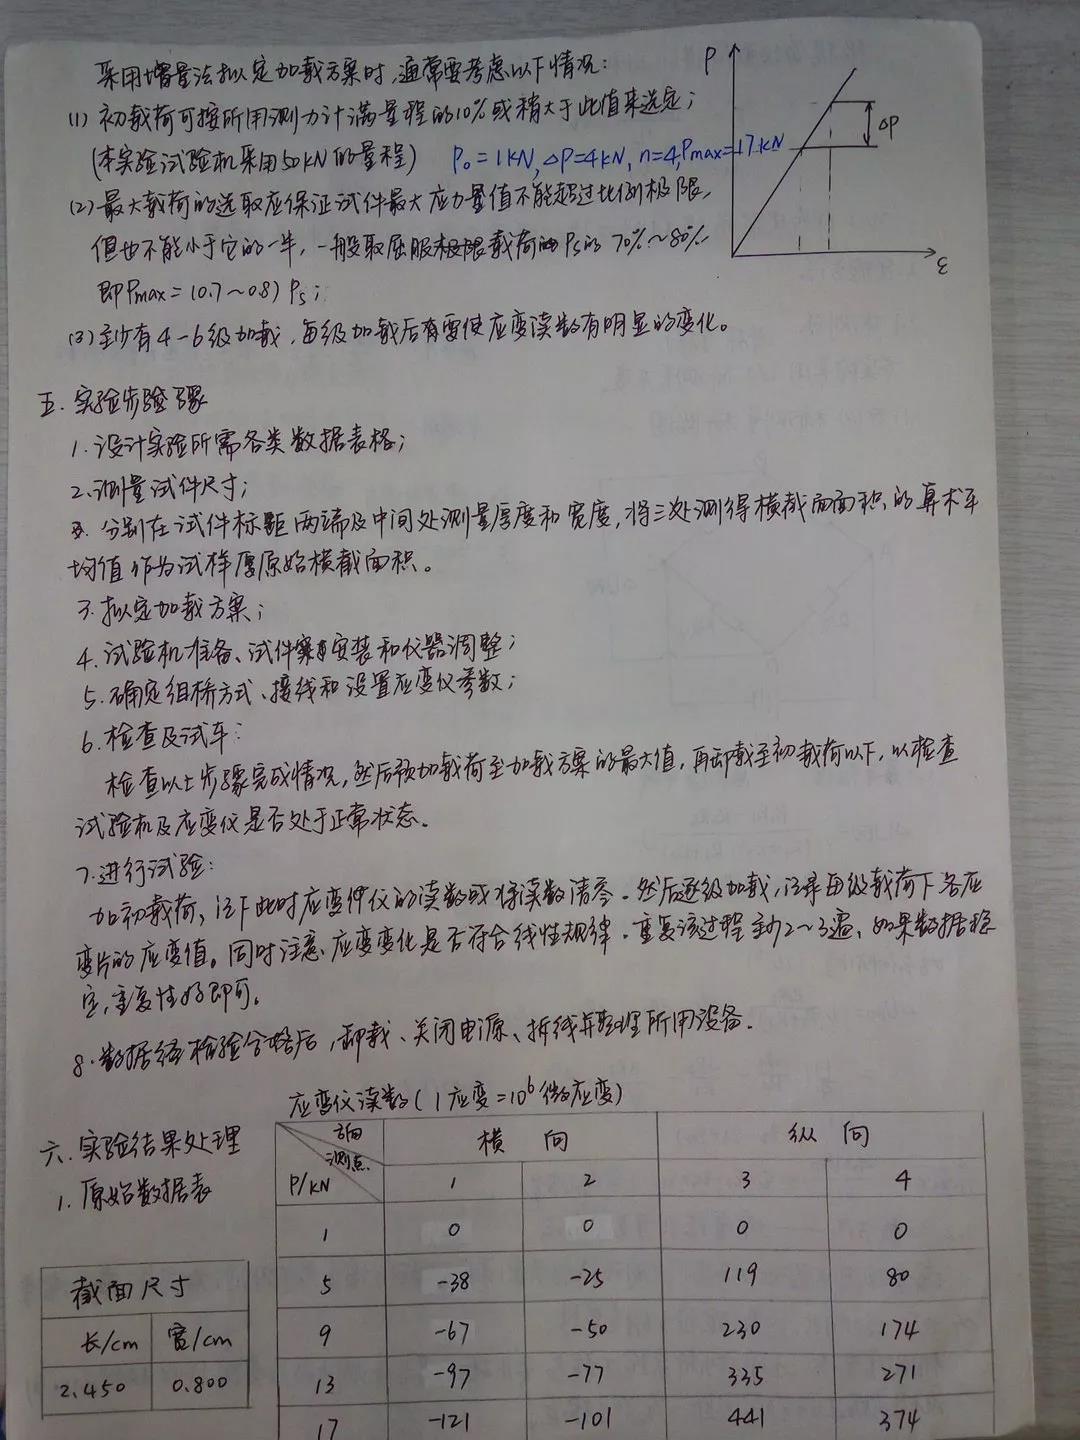 采用增量法拟定加载方案时,通常要考虑以下情况:
(1) 初载荷可按所用测力计满量程的10%或稍大于此值来选定;
(本实验试验机采用50kN的量程) P₀=1kN, ΔP=4kN, n=4, Pmax=17kN
(2) 最大载荷的选取应保证试件最大应力量值不能超过比例极限,
但也不能小于它的一半,一般取屈服极限载荷的Ps的70%~80%
即Pmax=(0.7~0.8) Ps;
(3) 至少有4-6级加载,每级加载后有要使应变读数有明显的变化。
P
ΔP
ε
五. 实验步骤
1. 设计实验所需各类数据表格;
2. 测量试件尺寸;
分别在试件标距两端及中间处测量厚度和宽度,将三次测得横截面面积的算术平
均值作为试样原始横截面积。
3. 拟定加载方案;
4. 试验机准备、试件安装和仪器调整;
5. 确定组桥方式、接线和设置应变仪参数;
6. 检查及试车:
检查以上步骤完成情况,然后预加载荷至加载方案的最大值,再卸载至初载荷以下,以检查
试验机及应变仪是否处于正常状态。
7. 进行试验:
加初载荷,记下此时应变仪的读数或将读数清零。然后逐级加载,记录每级载荷下各应
变片的应变值。同时注意,应变变化是否符合线性规律。重复该过程至少2~3遍,如果数据稳
定,重复性好即可。
8. 数据经检验合格后,卸载、关闭电源、拆线并整理所用设备.
六. 实验结果处理
1. 原始数据表
截面尺寸
长/cm 宽/cm
2.450 0.800
应变仪读数(1应变=10⁶微应变)
方向 横向 纵向
测点
P/kN 1 2 3 4
1 0 0 0 0
5 -38 -25 119 80
9 -67 -50 230 174
13 -97 -77 335 271
17 -121 -101 441 374